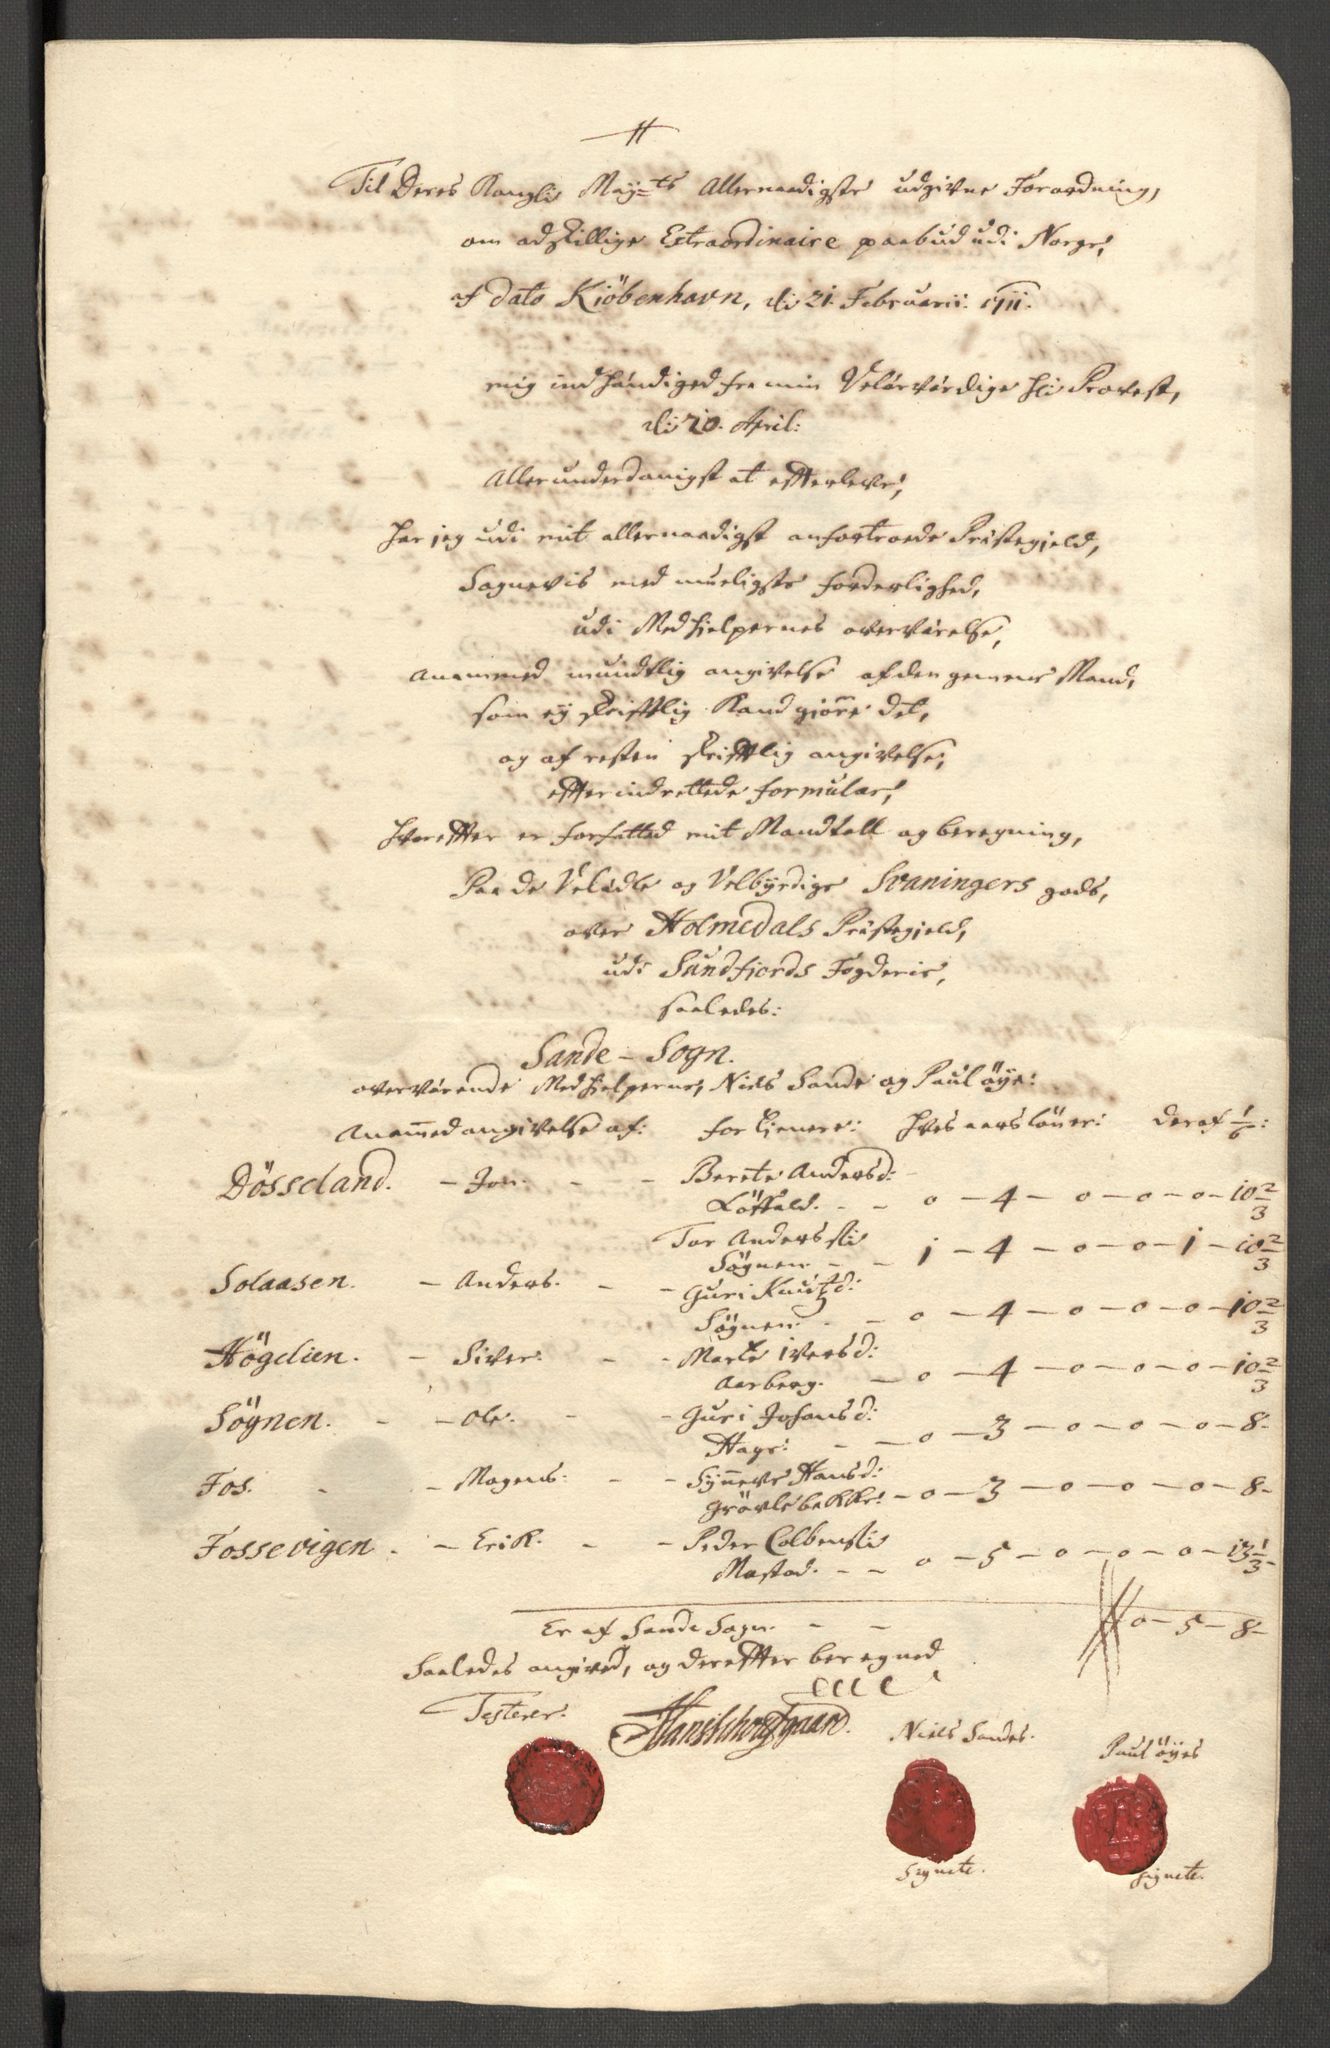 H
Til Deres Kongli May=ts Allernaadigste udgivne Forordning,
om adskillige Extraordinaire paabud udi Norge,
af dato Kiöbenhavn, di 21. Februarii. 1711.
mig indhändiged fra min Velärvärdige Hr Provest,
di 20. April:
Allerunderdanigst at efterleve,
har jeg udi mit allernaadigst anfortroede Prästegjeld,
Sognevis med mueligste forderlighed,
udi Medhielpernes overvärelse,
Anammed mundtlig angivelse af den gemene Mand,
som ey skriftlig kand giöre det,
og af resten skriftlig angivelse,
efter indrettede formular,
Hvorefter er forfatted mit Mandtall og beregning,
Paa de Velädle og Velbyrdige Svaningers gods,
over Holmedals Prästegjeld,
udi Sundfiords Fogderie,
saaledes:
Sande - Sogn.
overvärende Medhielperne, Niels Sande og Paul öye:
Anammed angivelse af: for tienere: Hves aarslöner: deraf 1/6:
Dösseland. - Jon. - - Berete Andersd: -
Löffald. - - 0 - 4 - 0 - 0 - 0 - 10 2/3
Tor Anderssön
Sögnen. - - 1 - 4 - 0 - 0 - 1 - 10 2/3
Solaasen. - Anders. - - Guri Knutzd:
Sögnen. - - 0 - 4 - 0 - 0 - 0 - 10 2/3
Högelien. - Siver. - - Marte Iversd:
Aarberg. - 0 - 4 - 0 - 0 - 0 - 10 2/3
Sögnen. - - Ole. - - Guri Johansd:
Hage: - - 0 - 3 - 0 - 0 - 0 - 8 -
Fos. - - Mogens: - - Synneve Hansd:
Grövlebekke: - 0 - 3 - 0 - 0 - 0 - 8 -
Fossevigen. - Erik. - - Peder Colbensön
Mostad. - - 0 - 5 - 0 - 0 - 0 - 13 1/3 -
Er af Sande Sogn. - - 0 - 5 - 8 -
Saaledes angived, og derefter beregned
Testerer.
Niels Sandes.
Paul öyes
Signete.
Signete.